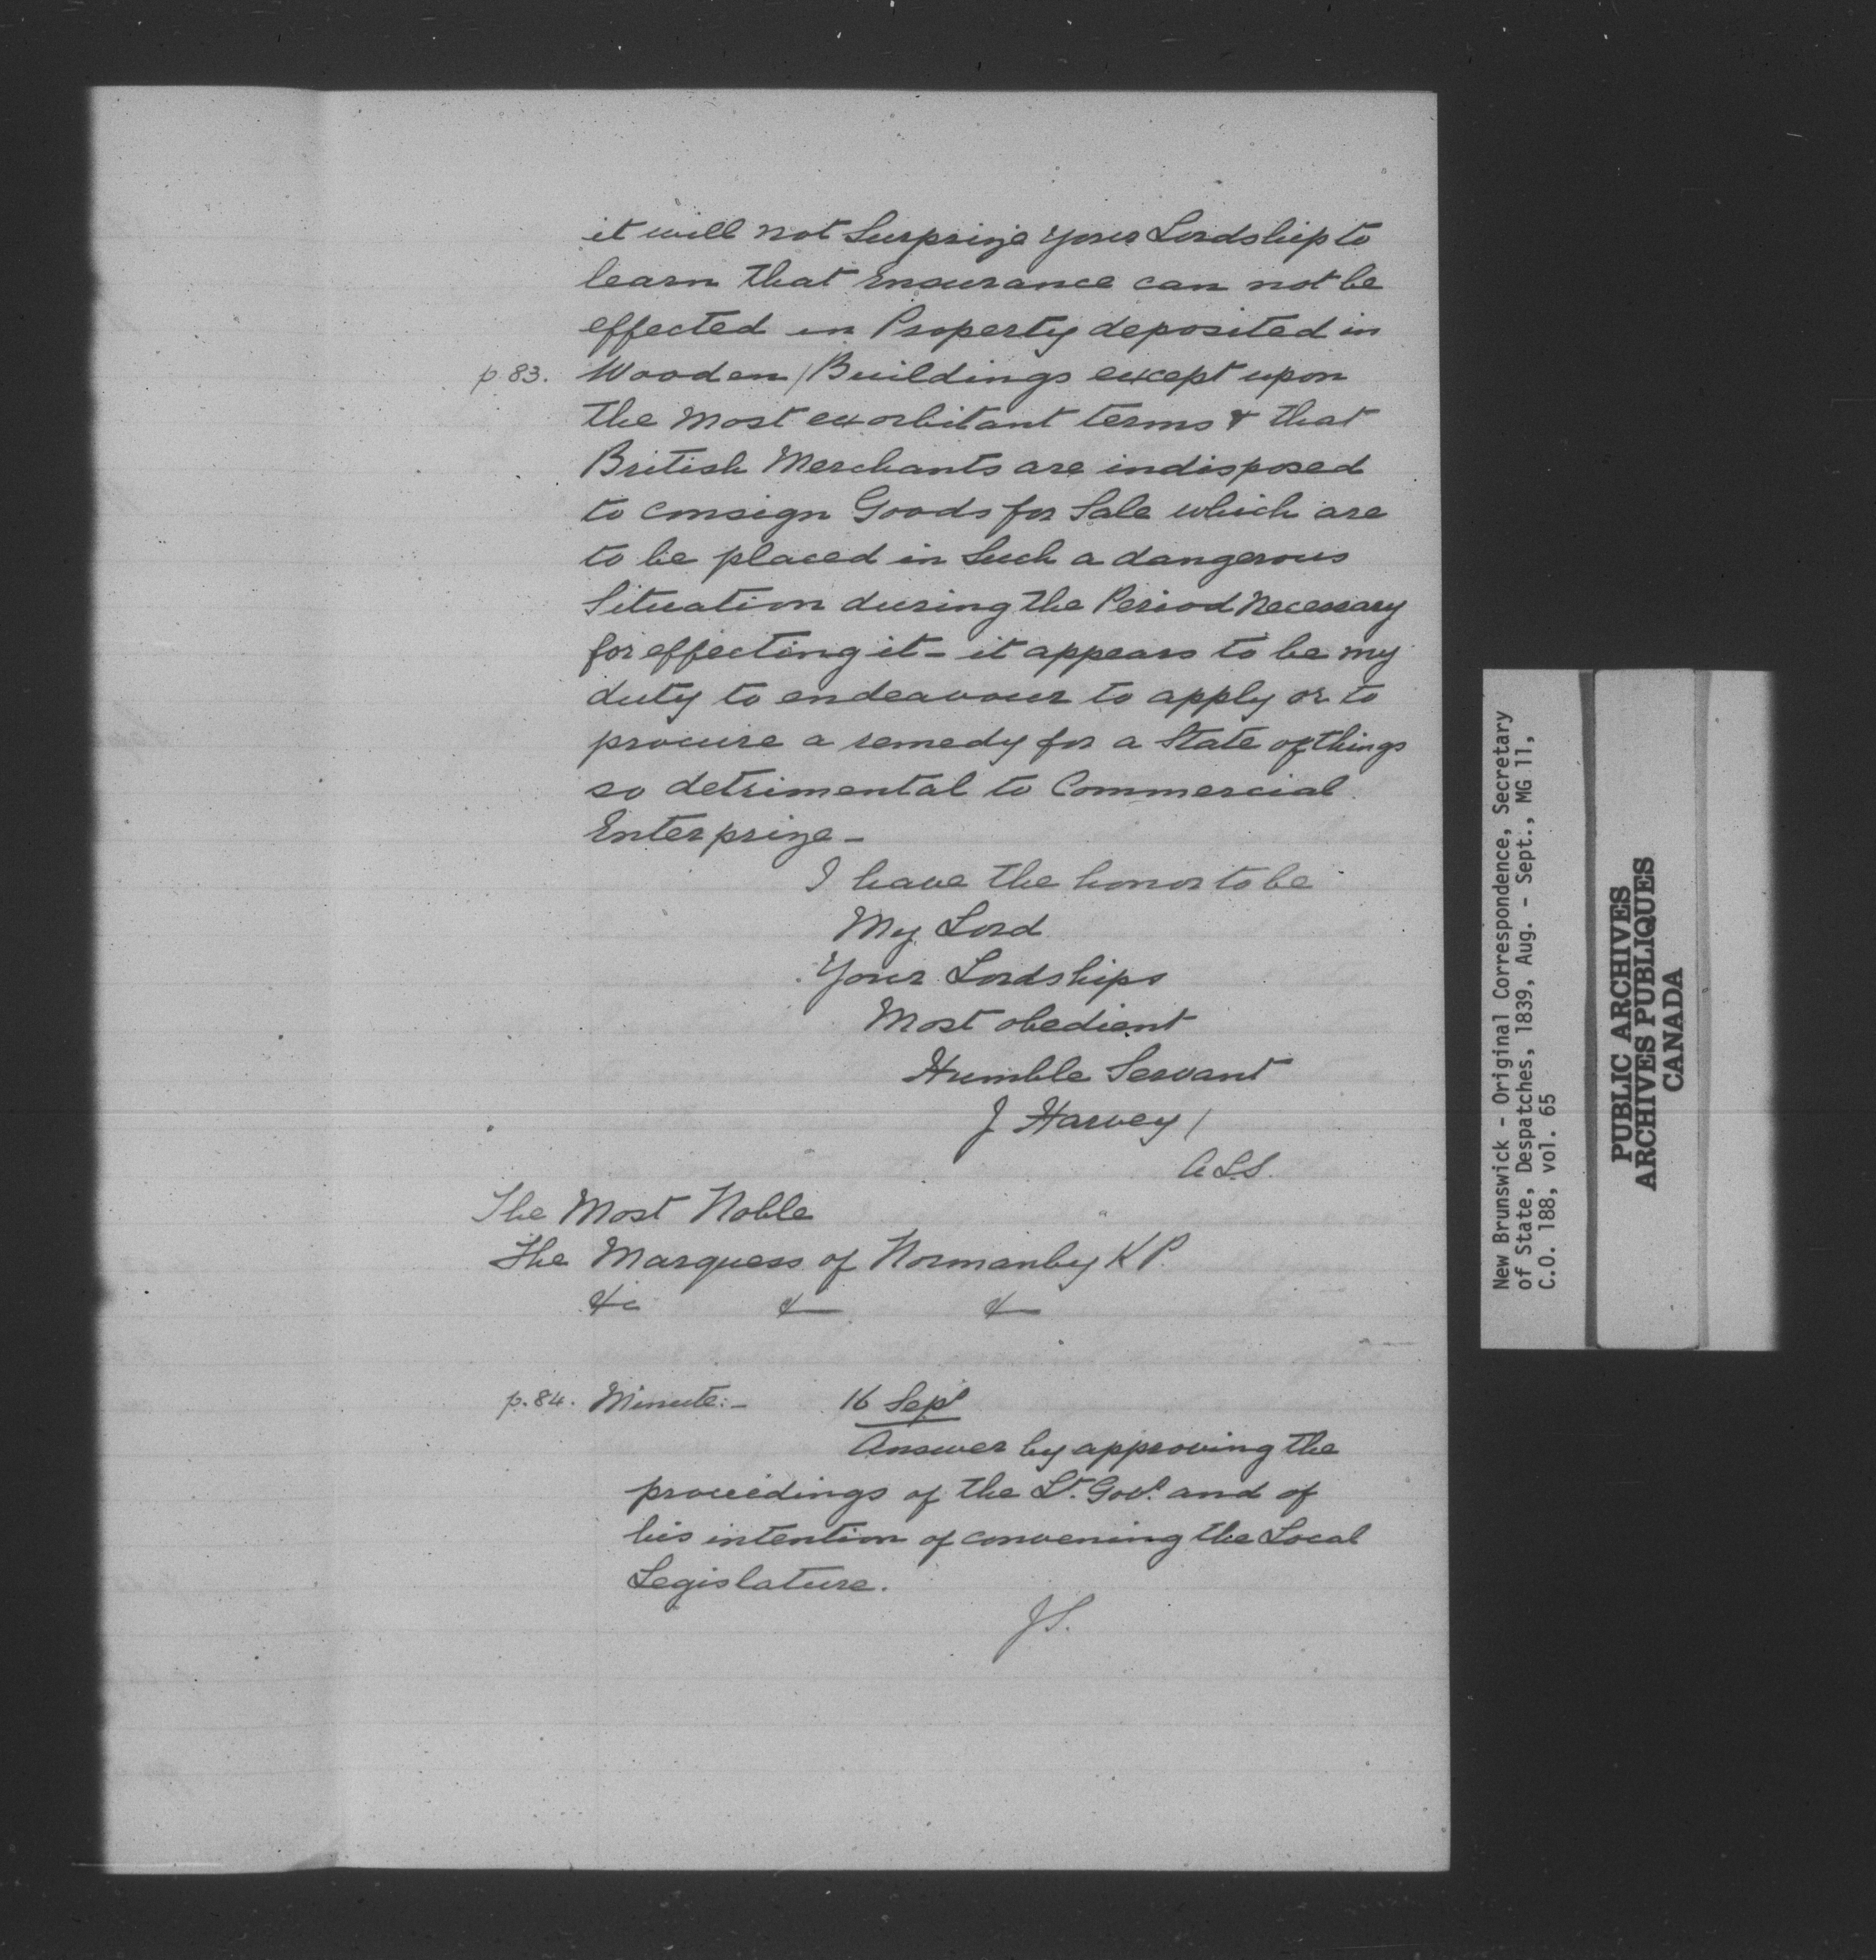 it will not Surprize your Lordship to
learn that Insurance can not be
effected in Property deposited in
p 83. Wooden / Buildings except upon
the Most exorbitant terms & that
British Merchants are indisposed
to consign Goods for Sale which are
to be placed in Such a dangerous
Situation during the Period Necessary
for effecting it - it appears to be my
duty to endeavour to apply or to
procure a remedy for a State of things
so detrimental to Commercial
Enterprize -
I have the honor to be
My Lord
Your Lordships
Most obedient
Humble Servant
J Harvey /
A L.S.
The Most Noble
The Marquess of Normanby K P.
&c & &
p. 84. Minute:- 16 Sept
Answer by approving the
proceedings of the Lt. Govr. and of
his intention of convening the Local
Legislature.
JS.
New Brunswick - Original Correspondence, Secretary
of State, Despatches, 1839, Aug. - Sept., MG 11,
C.O. 188, vol. 65
PUBLIC ARCHIVES
ARCHIVES PUBLIQUES
CANADA